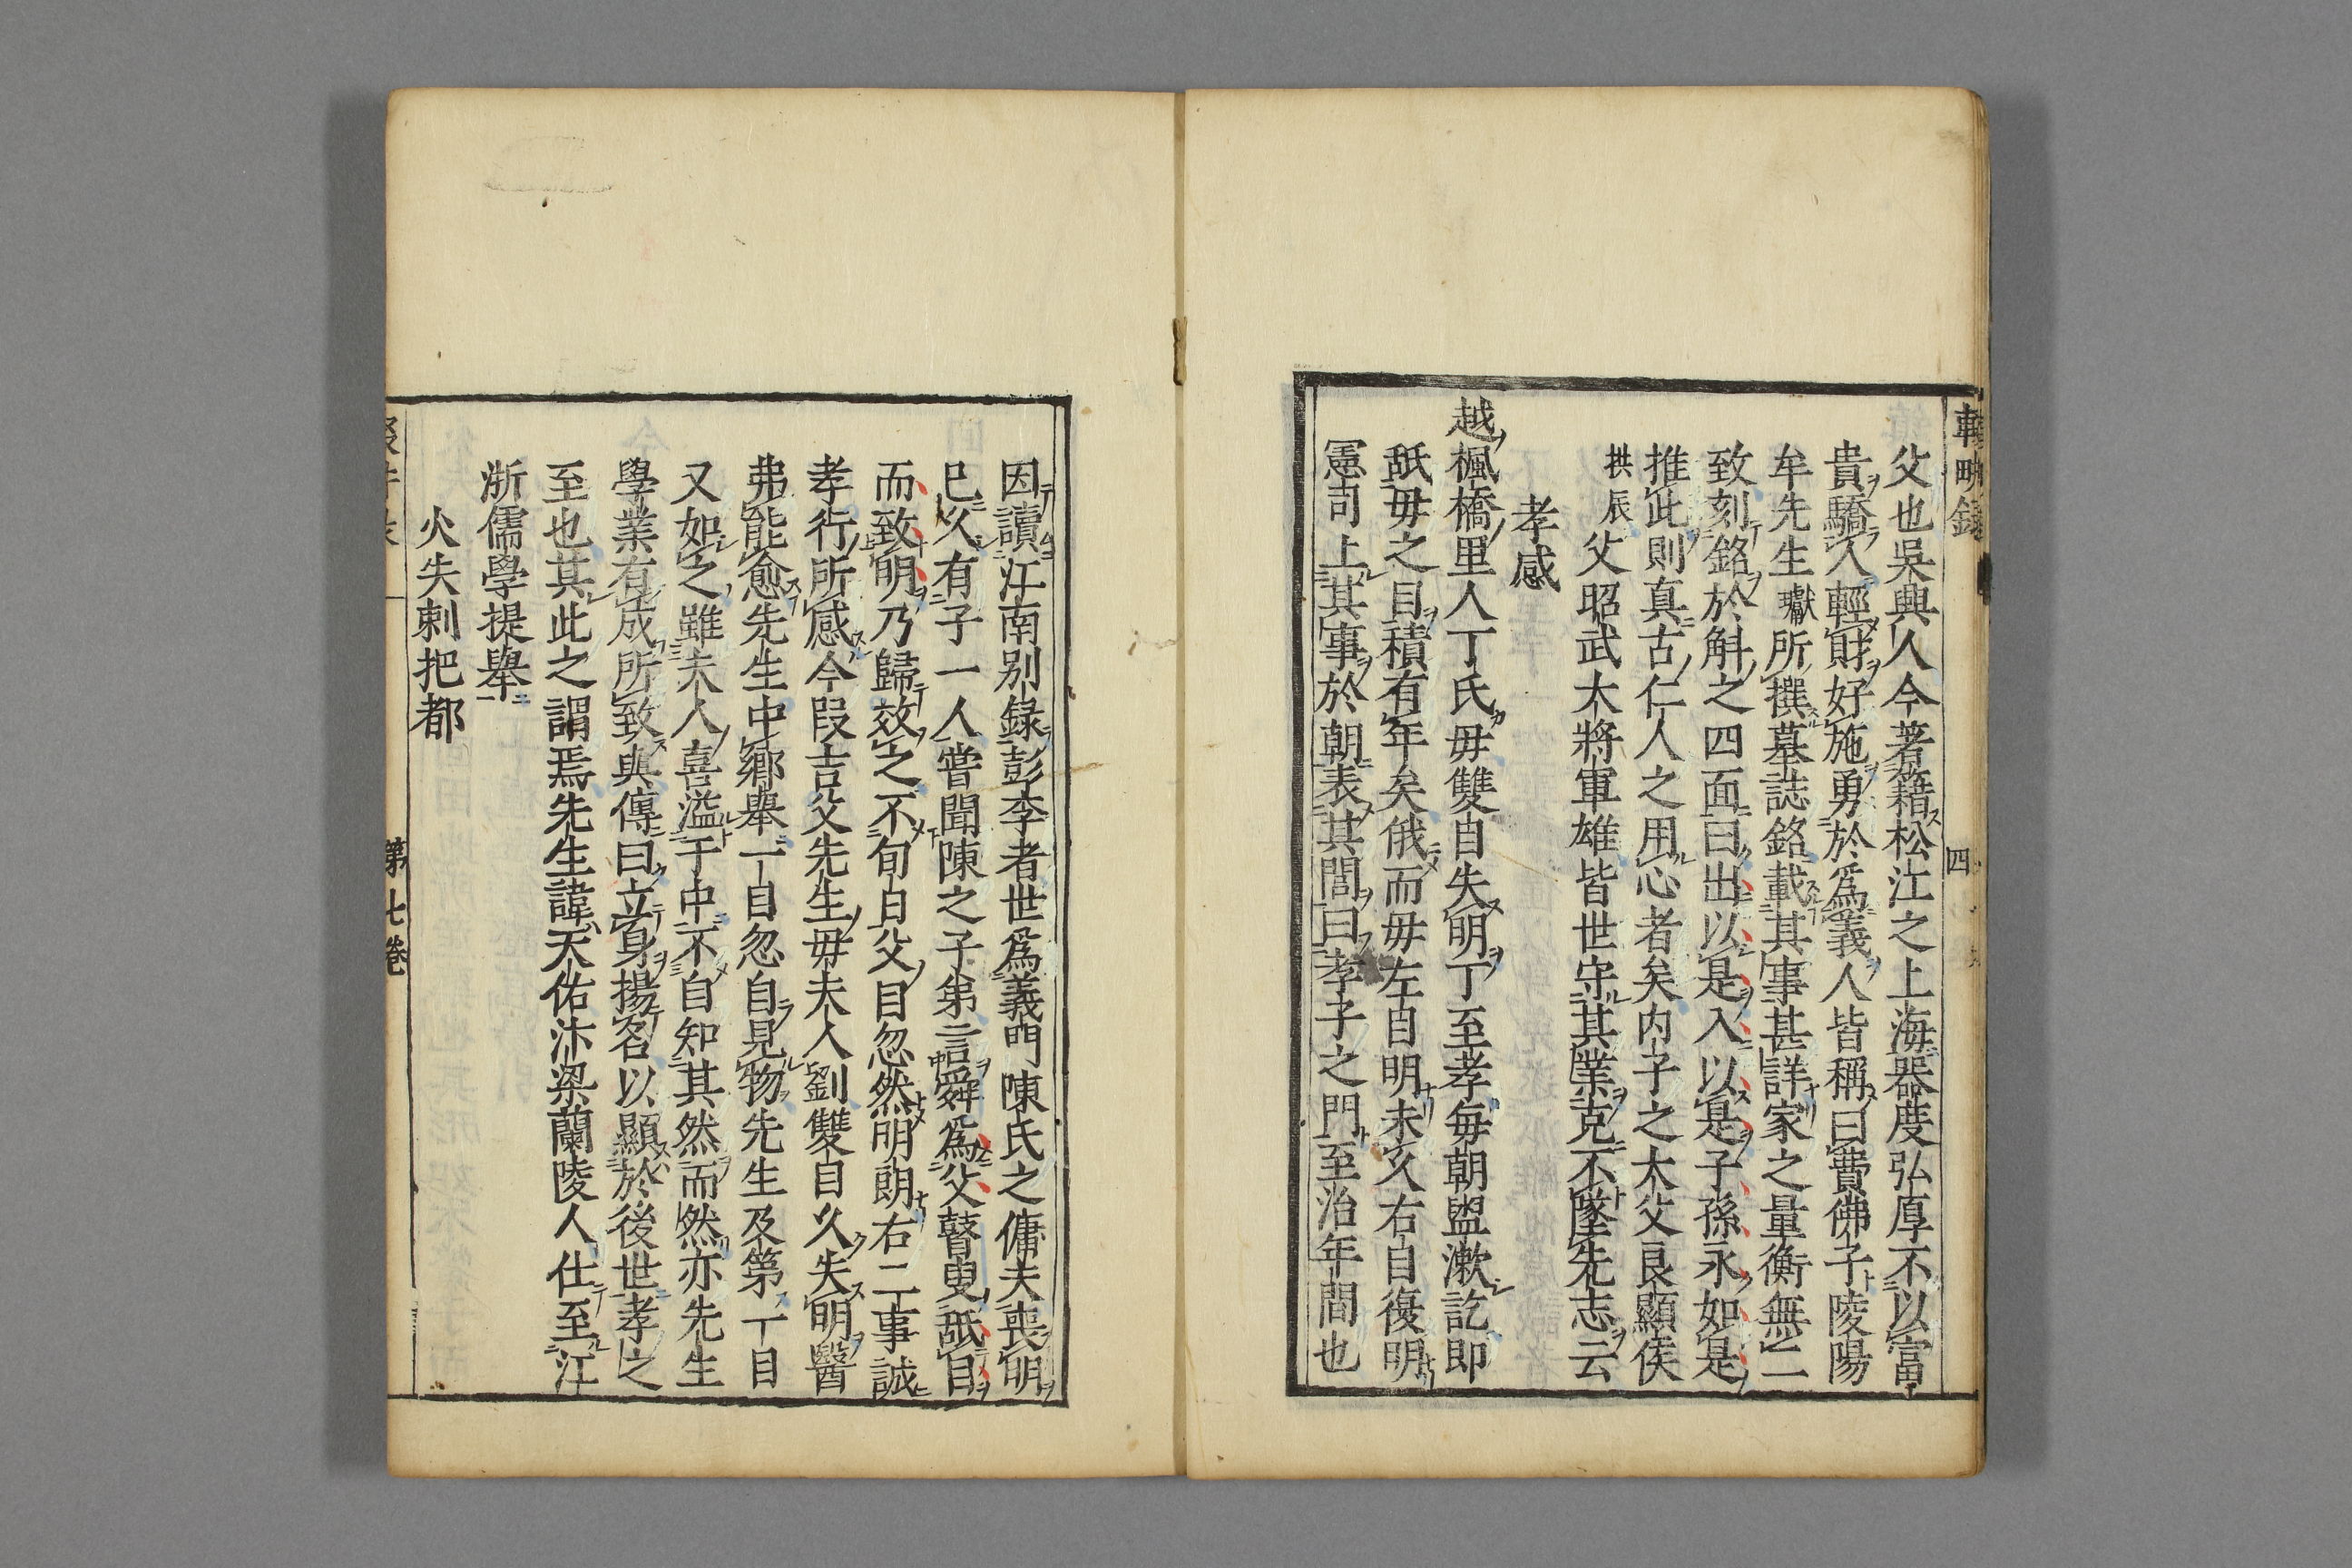 輟畊録
四
父也吳興人今著籍松江之上海器度弘厚不以富
貴驕人輕財好施勇於爲義人皆稱曰費佛子陵陽
牟先生巘所撰墓誌銘載其事甚詳家之量衡無二
致刻銘於斛之四面曰出以是入以是子孫永如是
推此則真古仁人之用心者矣内子之大父良顯侯
拱辰父昭武大將軍雄皆世守其業克不墜先志云
孝感
越楓橋里人丁氏母雙目失明丁至孝每朝盥漱訖即
䑛母之目積有年矣俄而母左目明未久右目復明
憲司上其事於朝表其閭曰孝子之門至治年間也
因讀江南別録彭李者世爲義門陳氏之傭夫喪明
已久有子一人嘗聞陳之子弟言舜爲父瞽叟䑛目
而致明乃歸效之不旬日父目忽然明朗右二事誠
孝行所感今叚吉父先生母夫人劉雙目久失明醫
弗能愈先生中鄉舉一目忽自見物先生及第一目
又如之雖夫人喜溢于中不自知其然而然亦先生
學業有成所致與傳曰立身揚名以顯於後世孝之
至也其此之謂焉先生諱天佑汴梁蘭陵人仕至江
浙儒學提舉
火失剌把都
第七卷